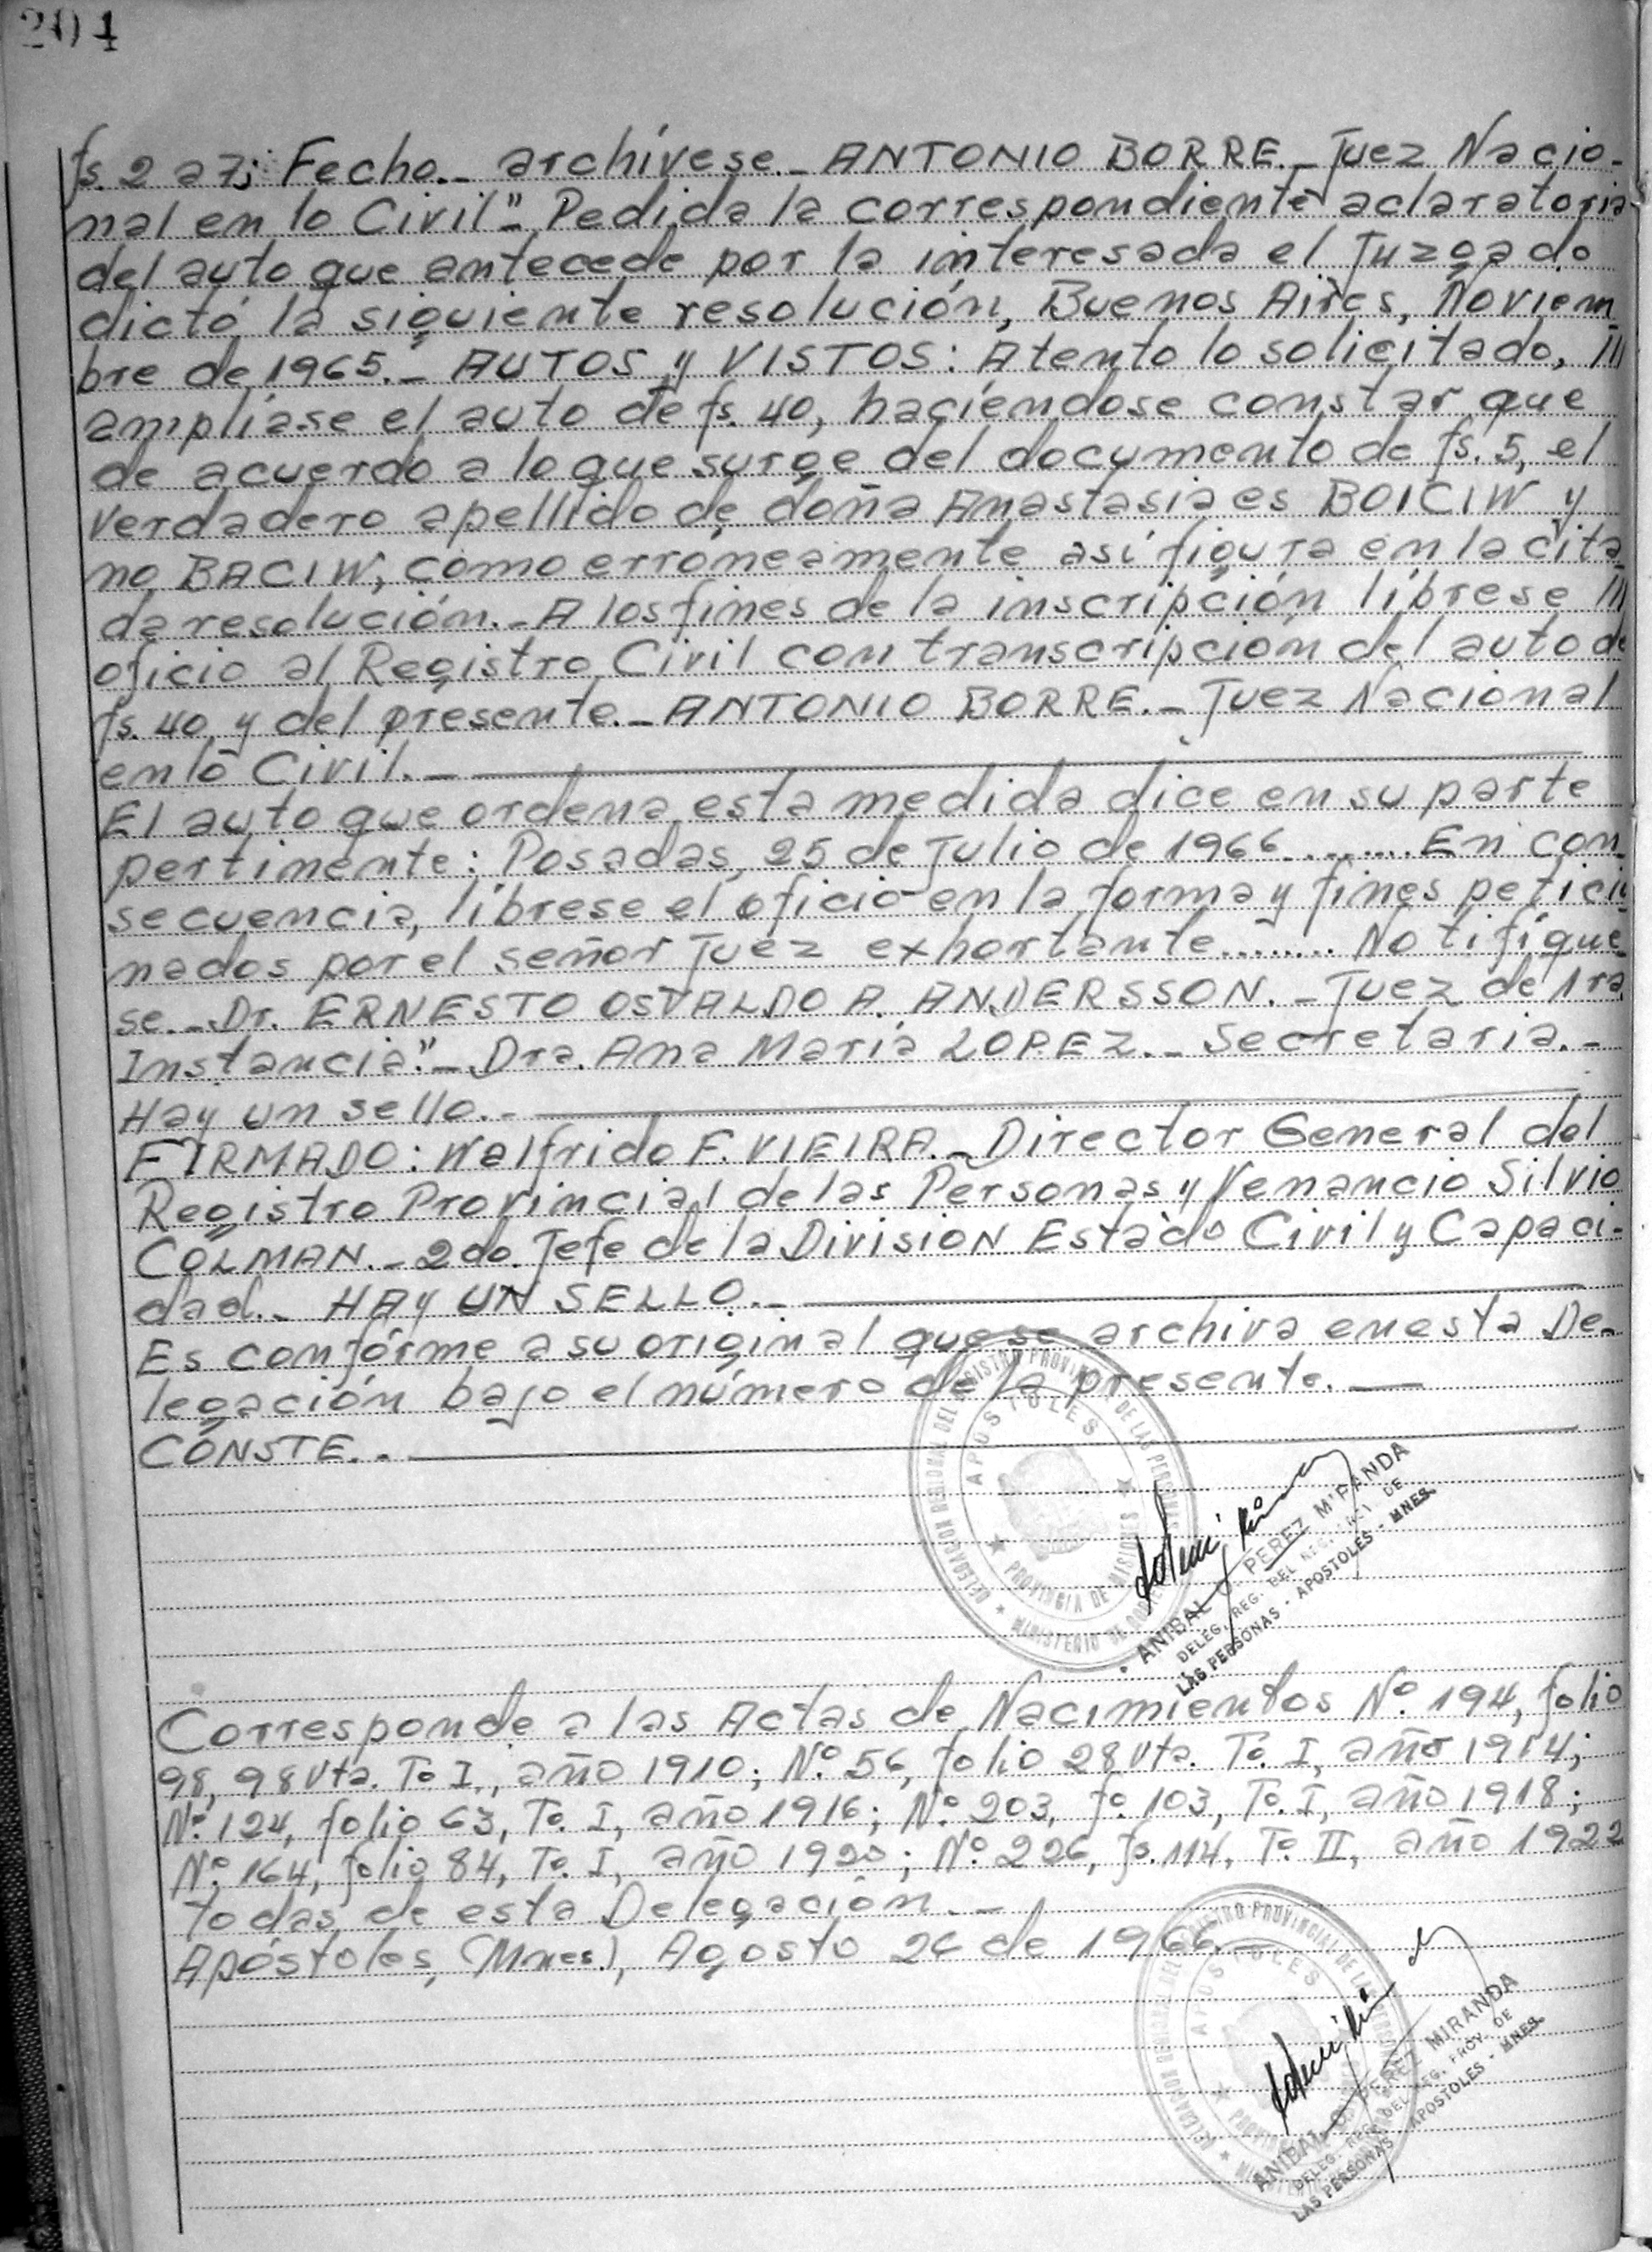 204
fs. 2 a 7; Fecho._ archívese._ ANTONIO BORRE._ Juez Nacio-
nal en lo Civil"_ Pedida la correspondiente aclaratoria
del auto que antecede por la interesada el Juzgado
dictó la siguiente resolución, Buenos Aires, Noviem
bre de 1965._ AUTOS y VISTOS: Atento lo solicitado, ///
ampliase el auto de fs. 40, haciéndose constar que
de acuerdo a lo que surge del documento de fs. 5, el
verdadero apellido de doña Anastasia es BOICIW y
no BACIW, como erróneamente así figura en la cita
da resolución._ A los fines de la inscripción líbrese ///
oficio al Registro Civil con transcripción del auto de
fs. 40 y del presente._ ANTONIO BORRE._ Juez Nacional
en lo Civil._
El auto que ordena esta medida dice en su parte
pertinente: Posadas, 25 de Julio de 1966........ En con
secuencia, líbrese el oficio en la forma y fines peticio
nados por el señor Juez exhortante........ Notifíque
se._ Dr. ERNESTO OSVALDO A. ANDERSSON._ Juez de 1ra
Instancia"._ Dra. Ana María LOPEZ._ Secretaria.-
Hay un sello.-
FIRMADO: Walfrido F. VIEIRA._ Director General del
Registro Provincial de las Personas y Venancio Silvio
COLMAN._ 2do. Jefe de la DIVISION Estado Civil y Capaci-
dad._ HAY UN SELLO._
Es confórme a su original que se archiva en esta De-
legación bajo el número de la presente.
CONSTE.-
DELEGACION REGIONAL DEL REGISTRO PROVINCIAL DE LAS PERSONAS
APOSTOLES
PROVINCIA DE MISIONES
MINISTERIO DE GOBIERNO
ANIBAL O. PEREZ MIRANDA
DELEG. REG. DEL REG. PROV. DE
LAS PERSONAS - APOSTOLES - MNES.
Corresponde a las Actas de Nacimientos Nº 194, folio
98, 98 Vta. Tº I, año 1910; Nº 56, folio 28 Vta. Tº I, año 1914;
Nº 124, folio 63, Tº I, año 1916; Nº 203, fº 103, Tº I, año 1918;
Nº 164, folio 84, Tº I, año 1920; Nº 226, fº 114, Tº II, año 1922
todas de esta Delegación._
Apóstoles, (Mnes), Agosto 26 de 1966.-
DELEGACION REGIONAL DEL REGISTRO PROVINCIAL DE LAS PERSONAS
APOSTOLES
ANIBAL O. PEREZ MIRANDA
DELEG. REG. DEL REG. PROV. DE
LAS PERSONAS - APOSTOLES - MNES.